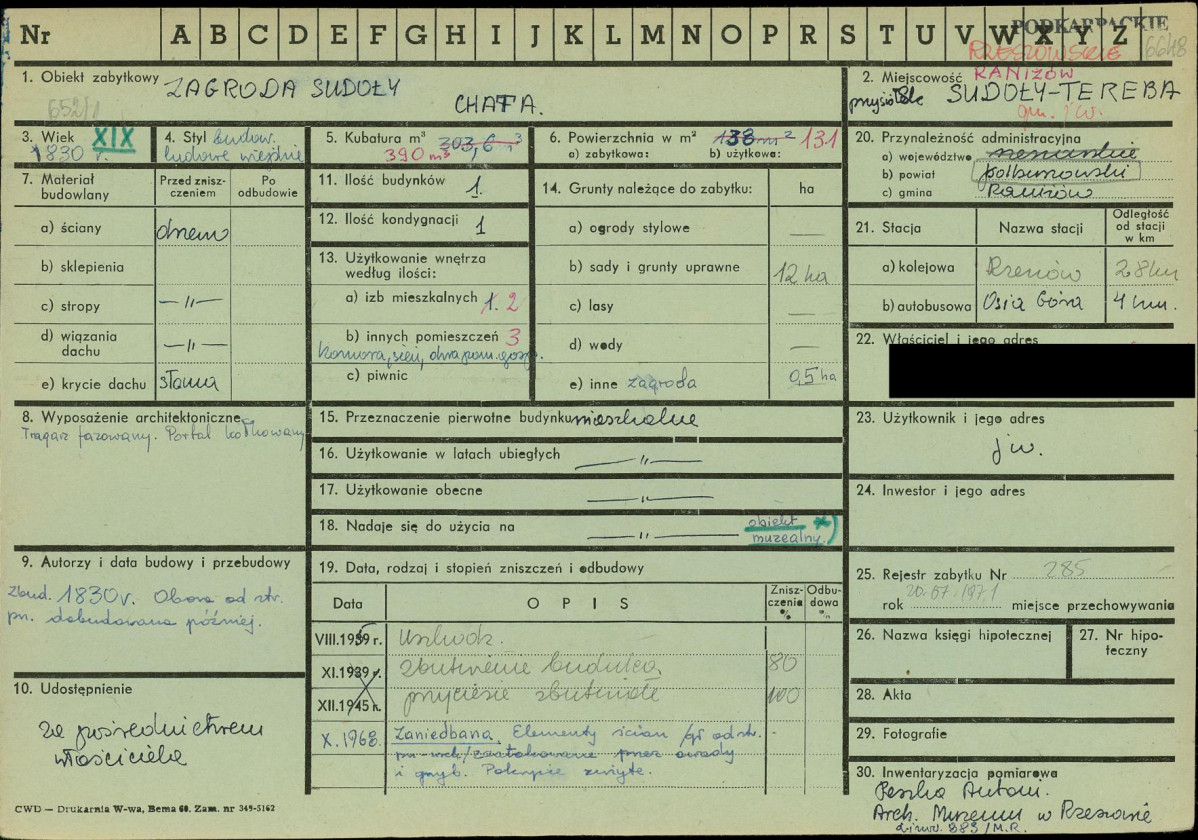 Nr A B C D E F G H I J K L M N O P R S T U V W X Y Z
PODKARPACKIE
RZESZOWSKIE 6648
1. Obiekt zabytkowy ZAGRODA SUDOŁY
CHATA.
652/1
2. Miejscowość RANIŻÓW
przysiółek SUDOŁY-TEREBA
gm. j.w.
3. Wiek XIX
1830 r.
4. Styl budow.
ludowe wiejskie
5. Kubatura m³ 303,6 m³
390 m³
6. Powierzchnia w m² 138 m² 131
a) zabytkowa: b) użytkowa:
20. Przynależność administracyjna
a) województwo rzeszowskie
b) powiat kolbuszowski
c) gmina Raniżów
7. Materiał budowlany
Przed zniszczeniem
Po odbudowie
a) ściany drewn
b) sklepienia
c) stropy —"—
d) wiązania dachu —"—
e) krycie dachu słoma
11. Ilość budynków 1.
12. Ilość kondygnacji 1
13. Użytkowanie wnętrza
według ilości:
a) izb mieszkalnych 1. 2
b) innych pomieszczeń 3
komora, sień, dwa pom. gosp.
c) piwnic
14. Grunty należące do zabytku: ha
a) ogrody stylowe —
b) sady i grunty uprawne 12 ha
c) lasy —
d) wody —
e) inne zagroda 0,5 ha
21. Stacja Nazwa stacji Odległość od stacji w km
a) kolejowa Rzeszów 28 km
b) autobusowa Osia Góra 4 km.
22. Właściciel i jego adres
8. Wyposażenie architektoniczne
Tragarz fazowany. Portal kołkowany
15. Przeznaczenie pierwotne budynku mieszkalne
16. Użytkowanie w latach ubiegłych —"—
17. Użytkowanie obecne —"—
18. Nadaje się do użycia na —"— obiekt x)
muzealny.
23. Użytkownik i jego adres
j w.
24. Inwestor i jego adres
9. Autorzy i data budowy i przebudowy
Zbud. 1830 r. Obora od str.
pn. dobudowana później.
19. Data, rodzaj i stopień zniszczeń i odbudowy
Data OPIS Zniszczenia % Odbudowa %
VIII.1939 r. uszkodz.
XI.1939 r. zbutwienie budulca 80
XII.1945 r. przyciesie zbutwiałe 100
X. 1968. Zaniedbana. Elementy ścian /gł. od str.
pn-wsch/ zaatakowane przez owady
i grzyb. Pokrycie zużyte.
25. Rejestr zabytku Nr 285
rok 20.07.1971 miejsce przechowywania
26. Nazwa księgi hipotecznej
27. Nr hipoteczny
10. Udostępnienie
za pośrednictwem
właściciela
28. Akta
29. Fotografie
30. Inwentaryzacja pomiarowa
Peszko Antoni.
Arch. Muzeum w Rzeszowie
z inw. 383/M.R.
CWD — Drukarnia W-wa, Bema 60. Zam. nr 349-5162